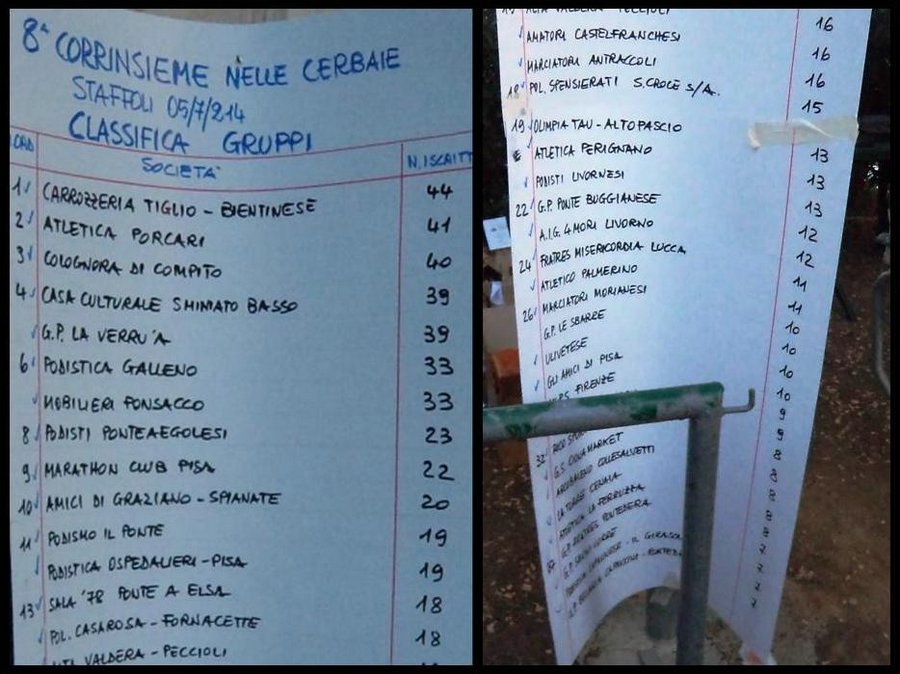 8ª CORRINSIEME NELLE CERBAIE
STAFFOLI 05/7/214
CLASSIFICA GRUPPI
ORD SOCIETA' N. ISCRITTI
1 CARROZZERIA TIGLIO - BIENTINESE 44
2 ATLETICA PORCARI 41
3 COLOGNORA DI COMPITO 40
4 CASA CULTURALE S MINIATO BASSO 39
G.P. LA VERRU'A 39
6 PODISTICA GALLENO 33
MOBILIERI PONSACCO 33
8 PODISTI PONTEAEGOLESI 23
9 MARATHON CLUB PISA 22
10 AMICI DI GRAZIANO - SPIANATE 20
11 PODISMO IL PONTE 19
PODISTICA OSPEDALIERI - PISA 19
13 SALA '78 PONTE A ELSA 18
POL. CASAROSA - FORNACETTE 18
VALDERA - PECCIOLI
ALTA VALDERA PECCIOLI 16
AMATORI CASTELFRANCHESI 16
MARCIATORI ANTRACCOLI 16
18 POL. SPENSIERATI S. CROCE S/A. 15
19 OLIMPIA TAU - ALTOPASCIO 13
ATLETICA PERIGNANO 13
PODISTI LIVORNESI 13
22 G.P. PONTE BUGGIANESE 12
A.I.G. 4 MORI LIVORNO 12
24 FRATRES MISERICORDIA LUCCA 11
ATLETICO PALMERINO 11
26 MARCIATORI MORIANESI 10
G.P. LE SBARRE 10
ULIVETESE 10
GLI AMICI DI PISA 10
FIRENZE 9
9
32 G.S. CONAMARKET 8
ARCOBALENO COLLESALVETTI 8
LA TORRE CENAIA 8
ATLETICA LA FERRUZZA 8
G.P. FRATRES PONTEDERA 8
37 G.P. 7
7
7